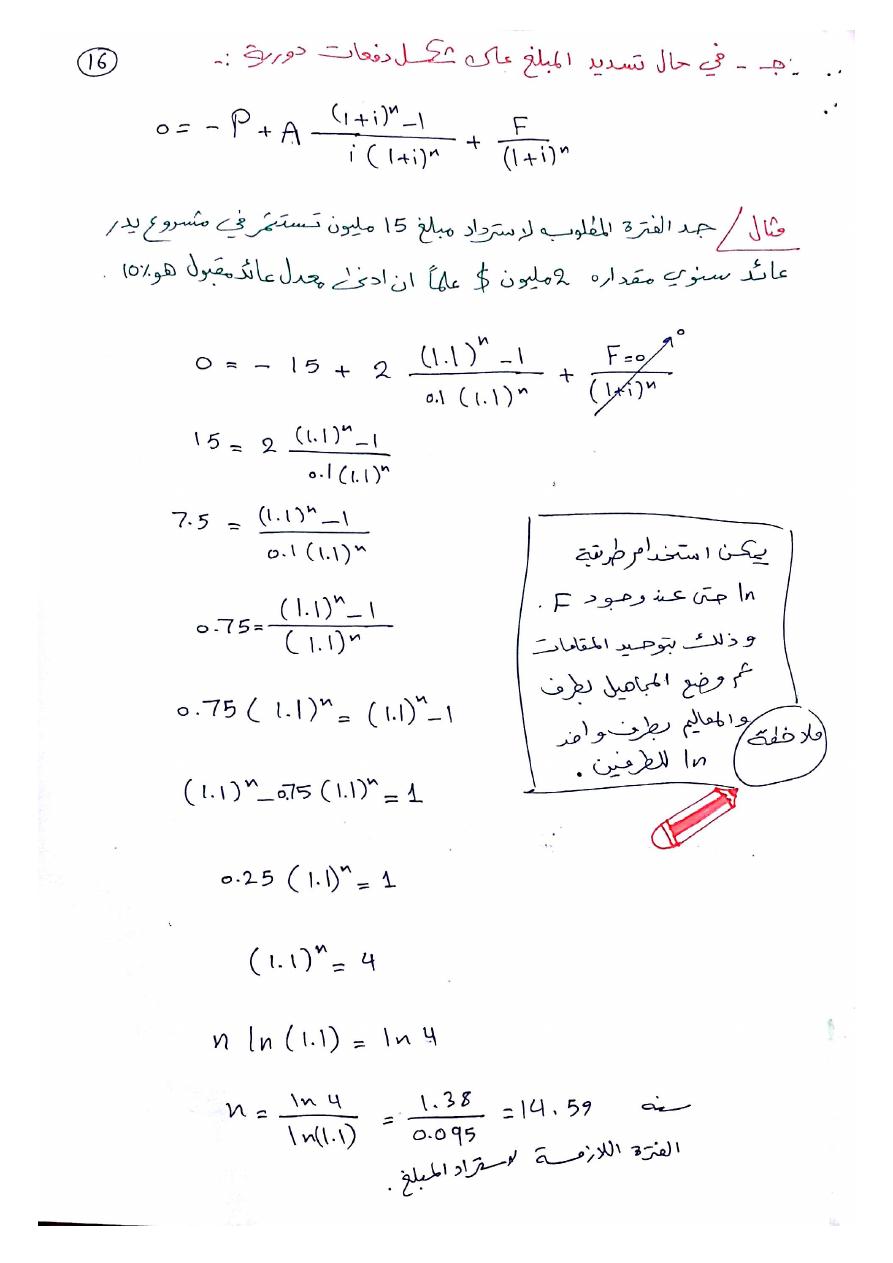 16
جـ - في حال تسديد المبلغ على شكل دفعات دورية :-
0 = - P + A ((1+i)^n - 1) / (i (1+i)^n) + F / (1+i)^n
مثال / جد الفترة المطلوب لاسترداد مبلغ 15 مليون تستثمر في مشروع يدر
عائد سنوي مقداره 2 مليون $ علماً ان ادنى معدل عائد مقبول هو 10% .
0 = - 15 + 2 ((1.1)^n - 1) / (0.1 (1.1)^n) + F=0 / (1+i)^n → 0
15 = 2 ((1.1)^n - 1) / (0.1 (1.1)^n)
7.5 = ((1.1)^n - 1) / (0.1 (1.1)^n)
0.75 = ((1.1)^n - 1) / (1.1)^n
0.75 (1.1)^n = (1.1)^n - 1
(1.1)^n - 0.75 (1.1)^n = 1
0.25 (1.1)^n = 1
(1.1)^n = 4
n ln (1.1) = ln 4
n = ln 4 / ln(1.1) = 1.38 / 0.095 = 14.59 سنه
الفترة اللازمة لاسترداد المبلغ .
يمكن استخدام طريقة
ln حتى عند وجود F .
وذلك بتوحيد المقامات
ثم وضع المجاهيل بطرف
والمعاليم بطرف واخذ
ln للطرفين .
ملاحظة